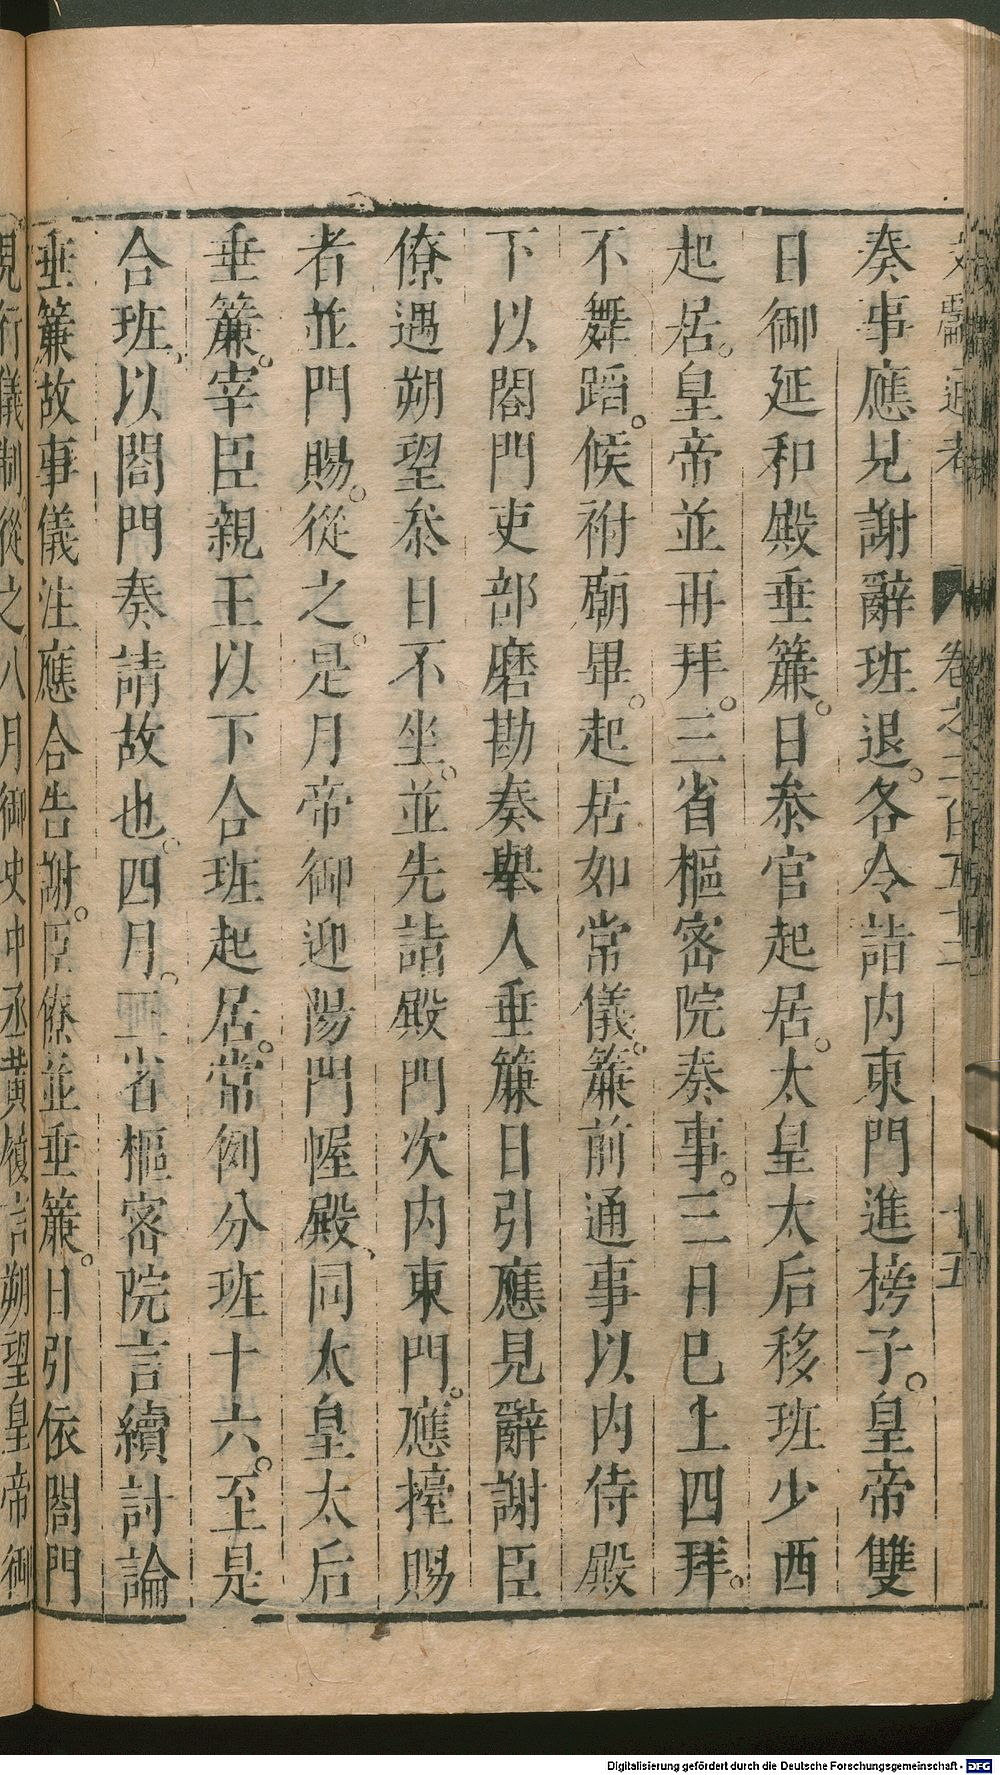 文獻通考 卷之二百五十二 十五
奏事應見謝辭班退。各令詣内東門進榜子。皇帝雙
日御延和殿垂簾。日叅官起居。太皇太后移班少西
起居。皇帝並再拜。三省樞密院奏事。三日已上四拜。
不舞蹈。候祔廟畢。起居如常儀。簾前通事以内侍殿
下以閤門吏部磨勘奏舉人垂簾日引應見辭謝臣
僚遇朔望叅日不坐。並先詣殿門次内東門。應擡賜
者並門賜。從之。是月帝御迎陽門幄殿、同太皇太后
垂簾。宰臣親王以下合班起居。常例分班十六。至是
合班、以閤門奏請故也。四月。三省樞密院言續討論
垂簾故事儀注應合告謝。臣僚並垂簾。日引依閤門
現行儀制從之八月御史中丞黄履言朔望皇帝御
Digitalisierung gefördert durch die Deutsche Forschungsgemeinschaft - DFG